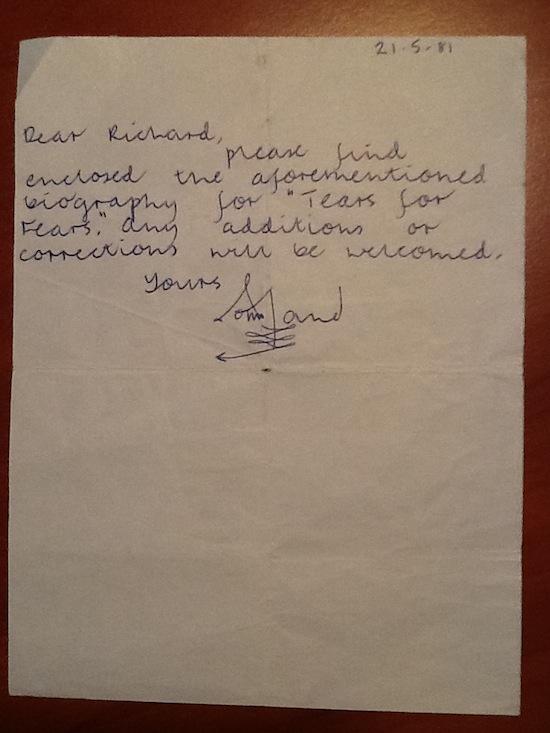 21-5-81
Dear Richard,
please find
enclosed the aforementioned
biography for "Tears for
Fears." Any additions or
corrections will be welcomed.
Yours
John